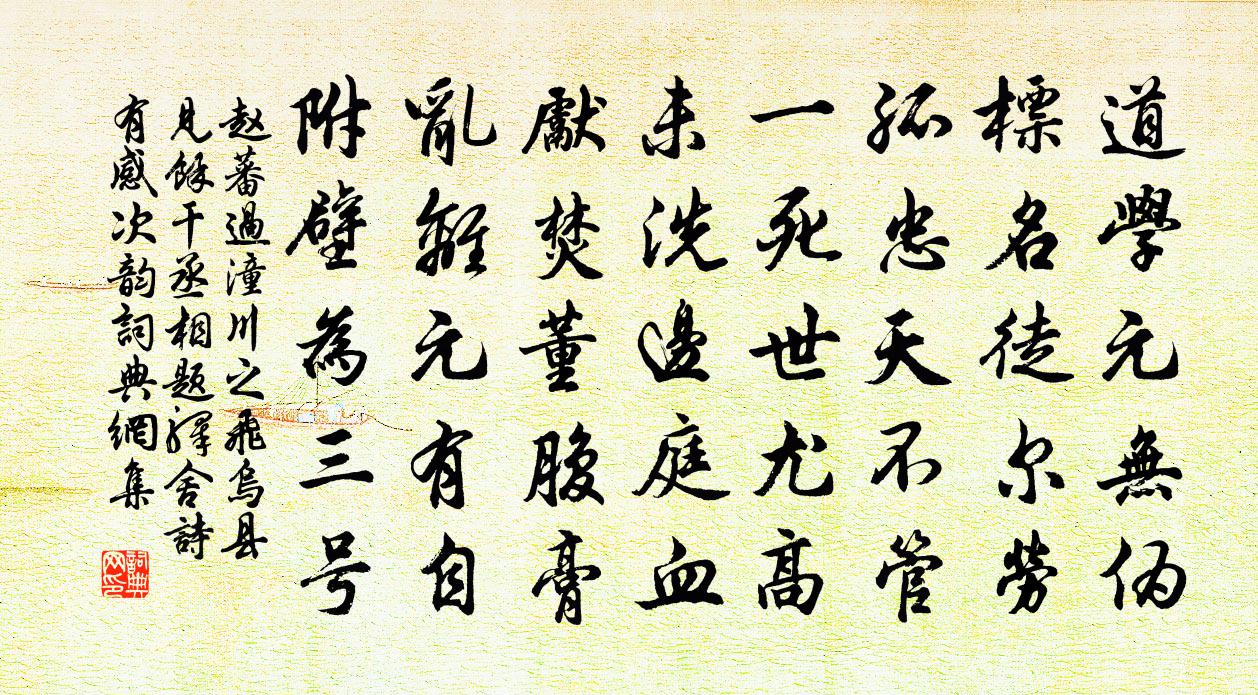 道學元無伪
標名徒尔勞
孤忠天不管
一死世尤高
未洗邊庭血
獻焚董腹膏
亂離元有自
附壁為三号
赵蕃過潼川之飛烏县
見餘干丞相题驛舍詩
有感次韵詞典網集
詞典
网印